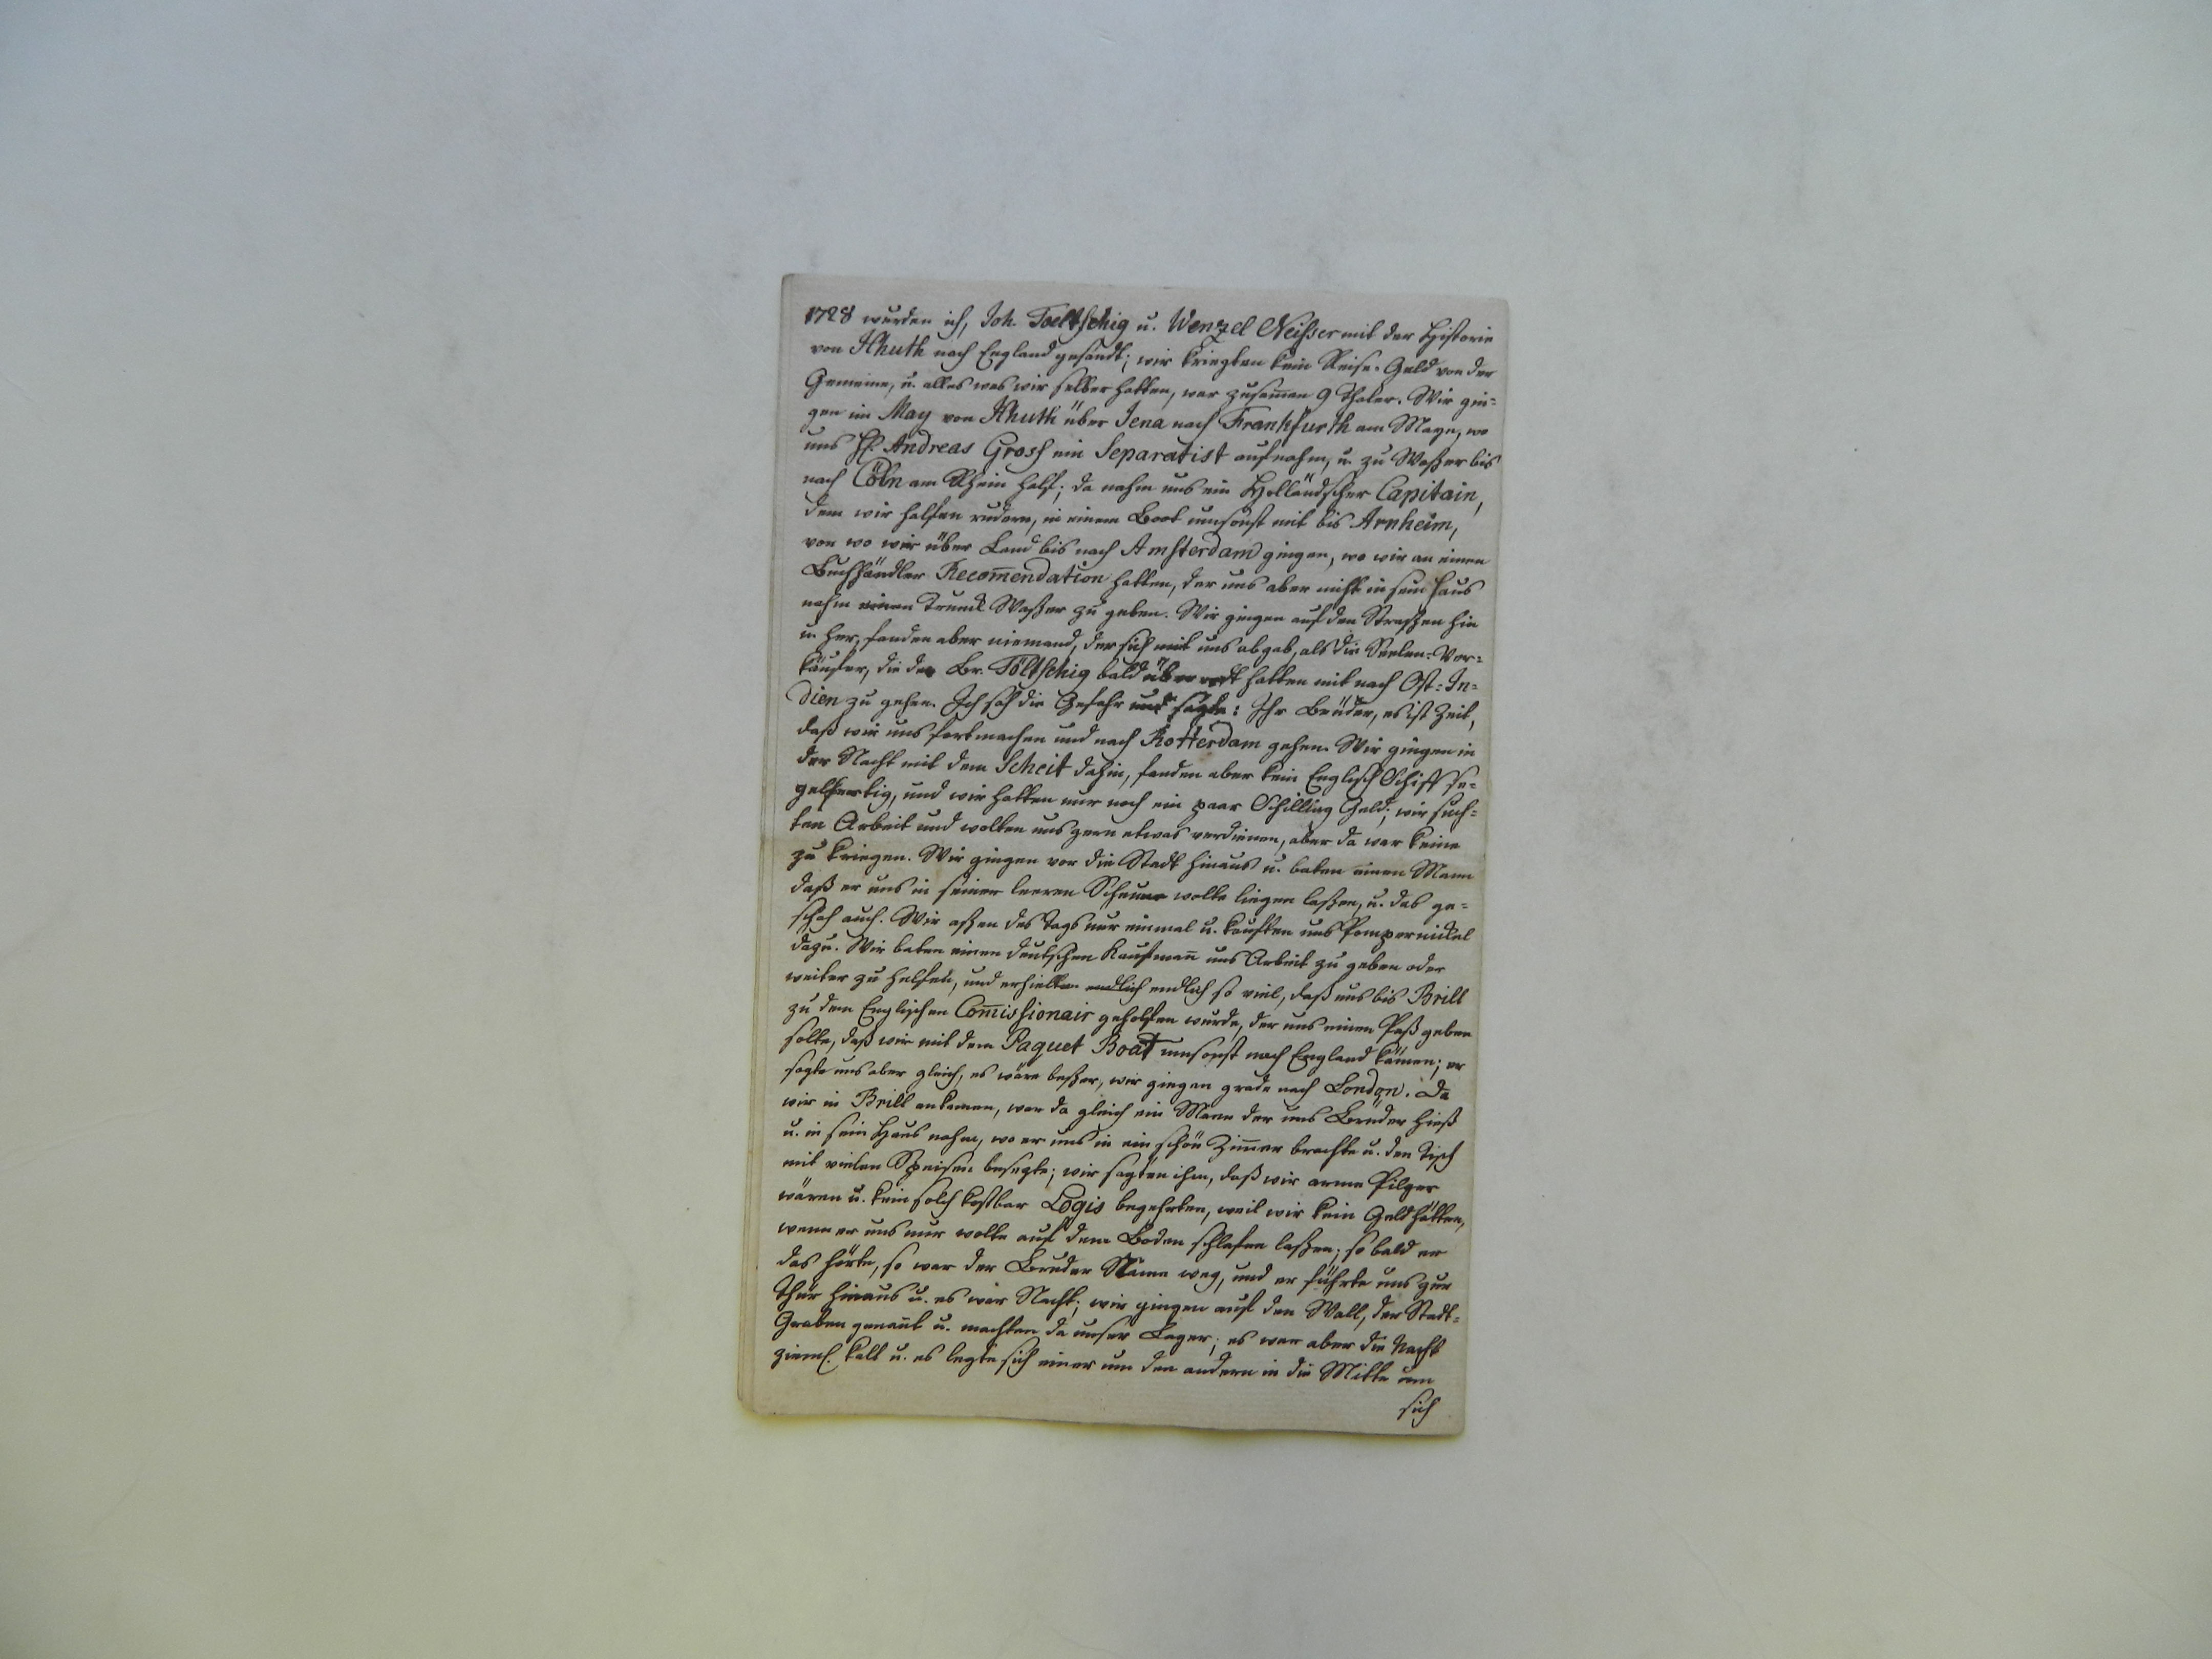 1728 wurden ich, Joh. Toeltschig u. Wenzel Neisser mit der Historie
von Hhuth nach England gesandt; wir kriegten kein Reise-Geld von der
Gemeine, u. alles was wir selber hatten, war zusam̅en 9 Thaler. Wir gin-
gen im May von Hhuth über Jena nach Franckfurth am Mayn, wo
uns H. Andreas Gross ein Separatist aufnahm, u. zu Waßer bis
nach Cöln am Rhein half; da nahm uns ein Holländscher Capitain,
dem wir halfen rudern, in einem Boot umsonst mit bis Arnheim,
von wo wir über Land bis nach Amsterdam gingen, wo wir an einen
Buchhändler Recom̅endation hatten, der uns aber nicht in sein Haus
nahm einen Trunck Waßer zu geben. Wir gingen auf den Straßen hin
u. her, fanden aber niemand, der sich mit uns abgab, als die Seelen-Ver-
käufer, die den Br. Töltschig bald überredt hatten mit nach Ost-In-
dien zu gehen. Ich sah die Gefahr und sagte: Ihr Brüder, es ist Zeit,
daß wir uns fortmachen und nach Rotterdam gehen. Wir gingen in
der Nacht mit dem Scheit dahin, fanden aber kein Englisch Schiff se-
gelfertig, und wir hatten nur noch ein paar Schilling Geld; wir such-
ten Arbeit und wolten uns gern etwas verdienen, aber da war keine
zu kriegen. Wir gingen vor die Stadt hinaus u. baten einen Mann
daß er uns in seiner leeren Scheune wolte liegen laßen, u. das ge-
schah auch. Wir aßen des Tags nur einmal u. kauften uns Pompernickel
dazu. Wir baten einen deutschen Kaufman̅ uns Arbeit zu geben oder
weiter zu helfen, und erhielten endlich endlich so viel, daß uns bis Brill
zu dem Englischen Com̅issionair geholfen wurde, der uns einen Paß geben
solte, daß wir mit dem Paquet Boat umsonst nach England kämen; er
sagte uns aber gleich, es wäre beßer, wir giengen grade nach London. Da
wir in Brill ankamen, war da gleich ein Mann der uns Brüder hieß
u. in sein Haus nahm, wo er uns in ein schön Zim̅er brachte u. den Tisch
mit vielen Speisen besezte; wir sagten ihm, daß wir arme Pilger
wären u. kein solch kostbar Logis begehrten, weil wir kein Geld hätten,
wenn er uns nur wolte auf dem Boden schlafen laßen; so bald er
das hörte, so war der Bruder Name weg, und er führte uns zur
Thür hinaus u. es war Nacht; wir gingen auf den Wall, der Stadt-
Graben genan̅t u. machten da unser Lager; es war aber die Nacht
zieml. kalt u. es legte sich einer um den andern in die Mitte um
sich